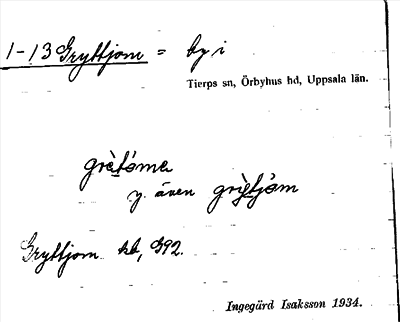 1-13 Gryttjom = by i
Tierps sn, Örbyhus hd, Uppsala län.
grètóme
y. även grìtjòm
Gryttjom kb, G92.
Ingegärd Isaksson 1934.